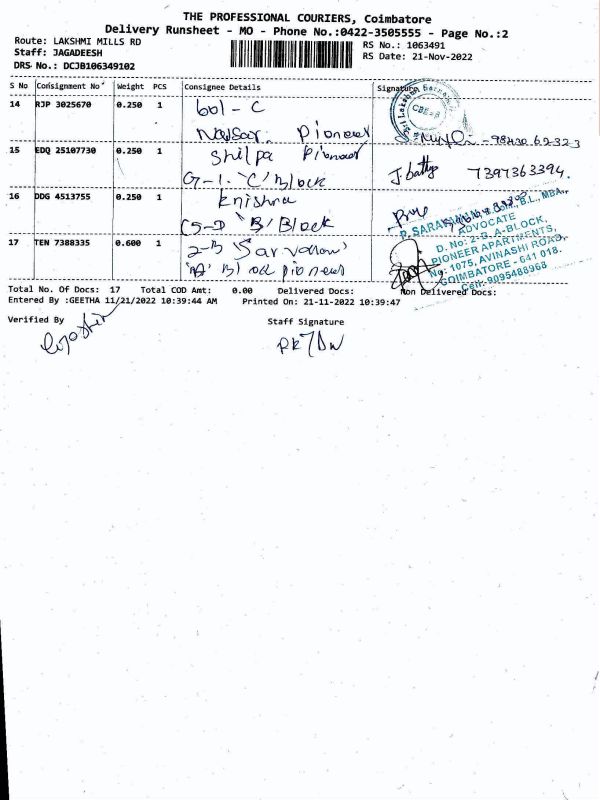 THE PROFESSIONAL COURIERS, Coimbatore
Delivery Runsheet - MO - Phone No.:0422-3505555 - Page No.:2
Route: LAKSHMI MILLS RD
Staff: JAGADEESH
DRS No.: DCJB106349102
RS No.: 1063491
RS Date: 21-Nov-2022
S No Consignment No Weight PCS Consignee Details Signature
14 RJP 3025670 0.250 1 601-C
Pioneer
15 EDQ 25107730 0.250 1 Shilpa Pioneer
G-1. 'C' Block 7397363394.
16 DDG 4513755 0.250 1 Krishna
'B' Block
17 TEN 7388335 0.600 1 2-B
'A' Block pioneer
ADVOCATE
D. No: 2-B, A-BLOCK,
PIONEER APARTMENTS,
No: 1075, AVINASHI ROAD,
COIMBATORE - 641 018.
Cell: 9095488968
Total No. Of Docs: 17 Total COD Amt: 0.00 Delivered Docs: Non Delivered Docs:
Entered By :GEETHA 11/21/2022 10:39:44 AM Printed On: 21-11-2022 10:39:47
Verified By Staff Signature